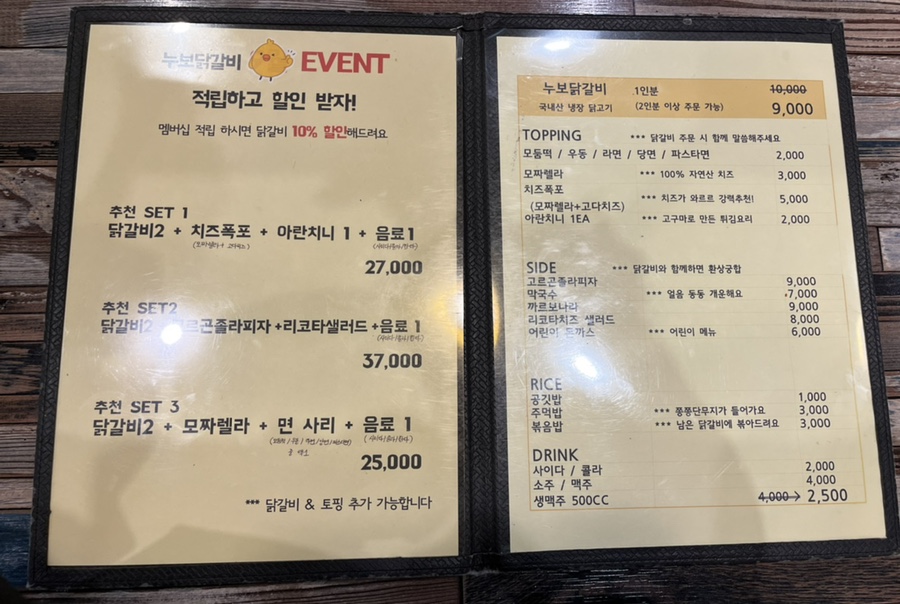 누보닭갈비 EVENT
적립하고 할인 받자!
멤버십 적립 하시면 닭갈비 10% 할인해드려요
추천 SET 1
닭갈비2 + 치즈폭포 + 아란치니 1 + 음료1
(모짜렐라+고다치즈)
27,000
추천 SET2
닭갈비2 고르곤졸라피자 +리코타샐러드 +음료 1
37,000
추천 SET 3
닭갈비2 + 모짜렐라 + 면 사리 + 음료1
25,000
*** 닭갈비 & 토핑 추가 가능합니다
누보닭갈비 1인분 10,000
국내산 냉장 닭고기 (2인분 이상 주문 가능) 9,000
TOPPING *** 닭갈비 주문 시 함께 말씀해주세요
모둠떡 / 우동 / 라면 / 당면 / 파스타면 2,000
모짜렐라 *** 100% 자연산 치즈 3,000
치즈폭포
(모짜렐라+고다치즈) *** 치즈가 와르르 강력추천! 5,000
아란치니 1EA *** 고구마로 만든 튀김요리 2,000
SIDE *** 닭갈비와 함께하면 환상궁합
고르곤졸라피자 9,000
막국수 *** 얼음 동동 개운해요 7,000
까르보나라 9,000
리코타치즈 샐러드 8,000
어린이 돈까스 *** 어린이 메뉴 6,000
RICE
공깃밥 1,000
주먹밥 *** 쫑쫑단무지가 들어가요 3,000
볶음밥 *** 남은 닭갈비에 볶아드려요 3,000
DRINK
사이다 / 콜라 2,000
소주 / 맥주 4,000
생맥주 500CC 4,000→ 2,500